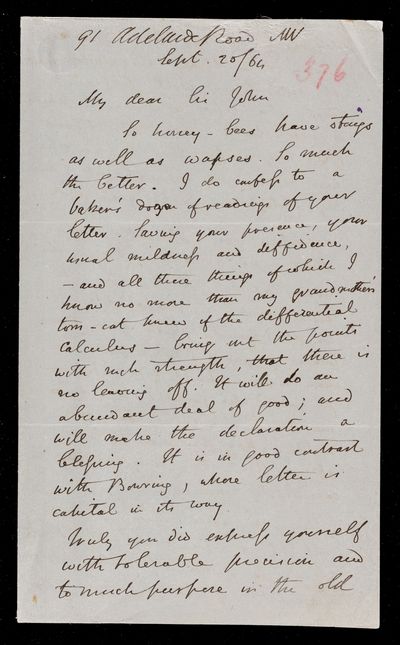 91 Adelaide Road NW
Sept. 20/64
376
My dear Sir John
So honey-bees have stings
as well as wapses. So much
the better. I do confess to a
baker's dozen of readings of your
letter. Saving your presence, your
usual mildness and diffidence,
– and all those things of which I
know no more than my grandmother's
tom-cat knew of the differential
calculus – bring out the points
with such strength, that there is
no leaving off. It will do an
abundant deal of good; and
will make the declaration a
blessing. It is in good contrast
with Bowring, whose letter is
capital in its way
Truly you did express yourself
with tolerable precision and
to much purpose in the old